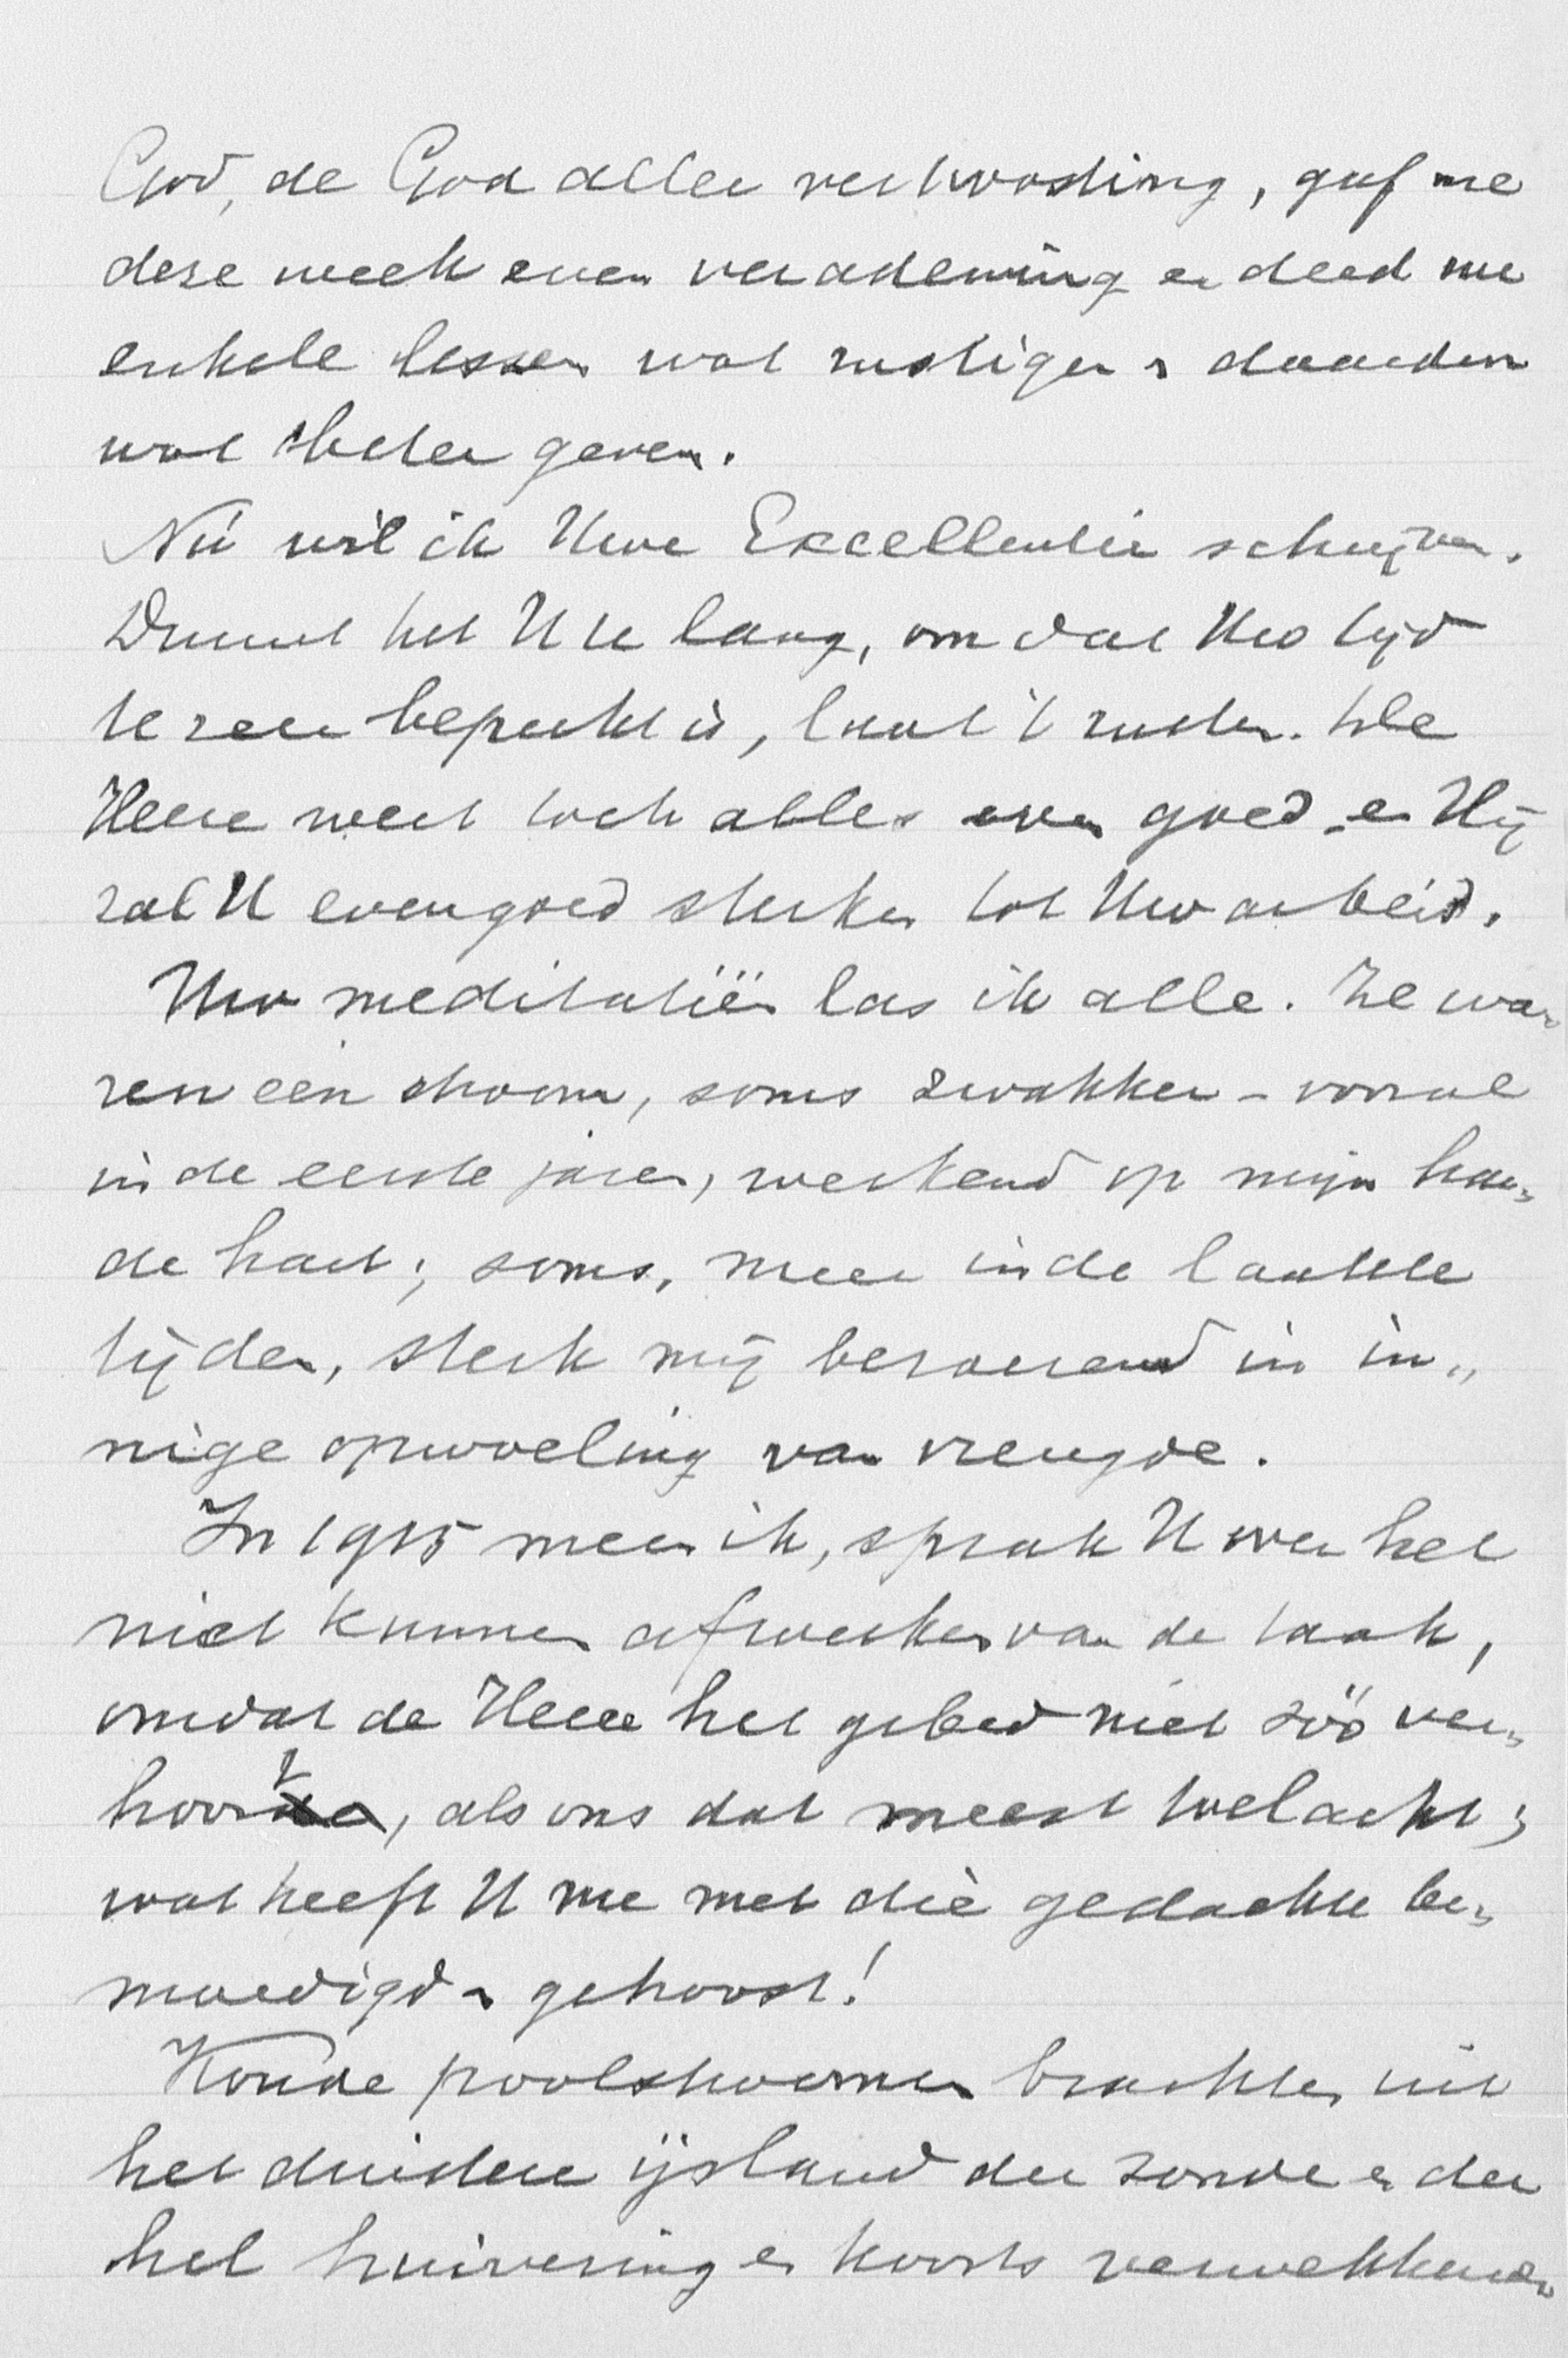 God, de God aller vertroosting, gaf me
deze week even verademing en deed me
enkele lessen wat rustiger & daardoor
wat beter geven.
Nú wil ik Uwe Excellentie schrijven.
Duurt het U te lang, omdat Uw tijd
te zeer beperkt is, laat 't rusten. De
Heere weet toch alles even goed en Hij
zal U evengoed sterken tot Uw arbeid.
Uw meditatiën las ik alle. Ze wa-
ren één stroom, soms zwakker - vooral
in de eerste jaren, werkend op mijn har-
de hart; soms, meer in de laatste
tijden, sterk mij beroerend in in-
nige opwoeling van vreugde.
In 1915 meen ik, sprak U over het
niet kunnen afwerken van de taak,
omdat de Heere het gebed niet zóó ver-
hoort, als ons dat meest toelacht;
wat heeft U me met díe gedachte be-
moedigd & getroost!
Koude poolstroomen brachten uit
het duistere ijsland der zonde en der
hel huivering en koorts verwekkende